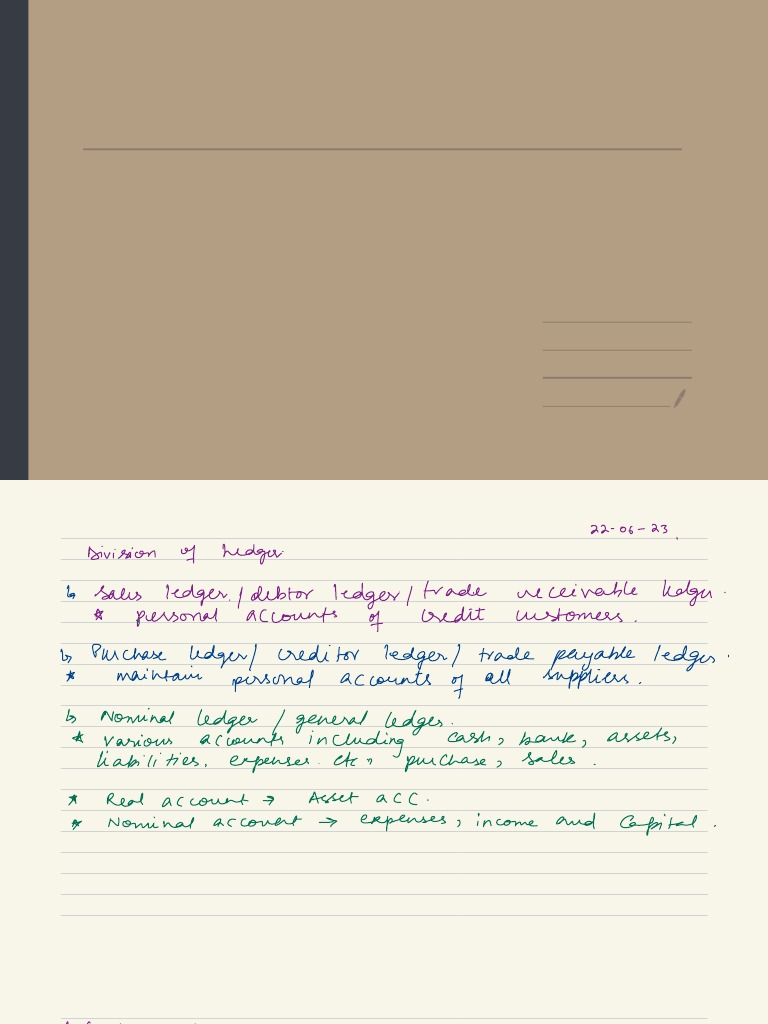 22-06-23
Division of Ledger
↳ Sales ledger/debtor ledger/trade receivable ledger.
* personal accounts of credit customers.
↳ Purchase ledger/ creditor ledger/ trade payable ledger.
* maintain personal accounts of all suppliers.
↳ Nominal ledger / general ledger.
* various accounts including cash, bank, assets,
liabilities, expenses etc, purchase, sales.
* Real account → Asset acc.
* Nominal account → expenses, income and Capital.